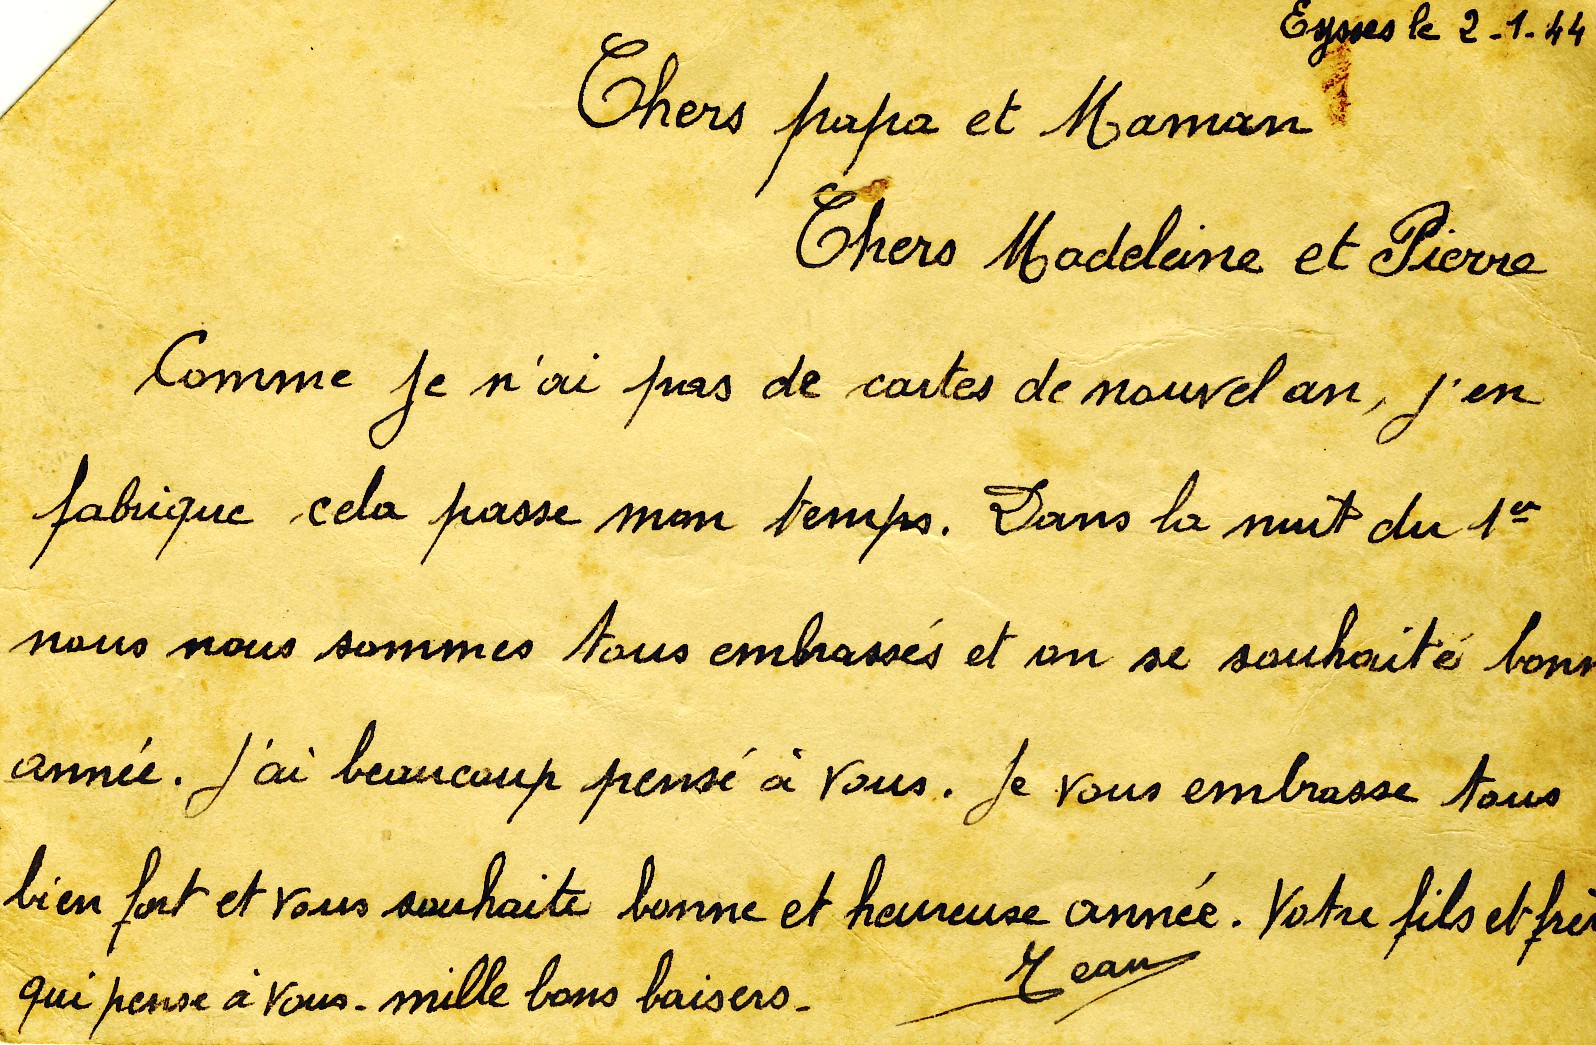 Eysses le 2-1-44
Chers papa et Maman
Chers Madeleine et Pierre
Comme je n'ai pas de cartes de nouvel an, j'en
fabrique cela passe mon temps. Dans la nuit du 1er
nous nous sommes tous embrassés et on se souhaité bonn
année. J'ai beaucoup pensé à vous. Je vous embrasse tous
bien fort et vous souhaite bonne et heureuse année. Votre fils et frèr
qui pense à vous - mille bons baisers -
Jean